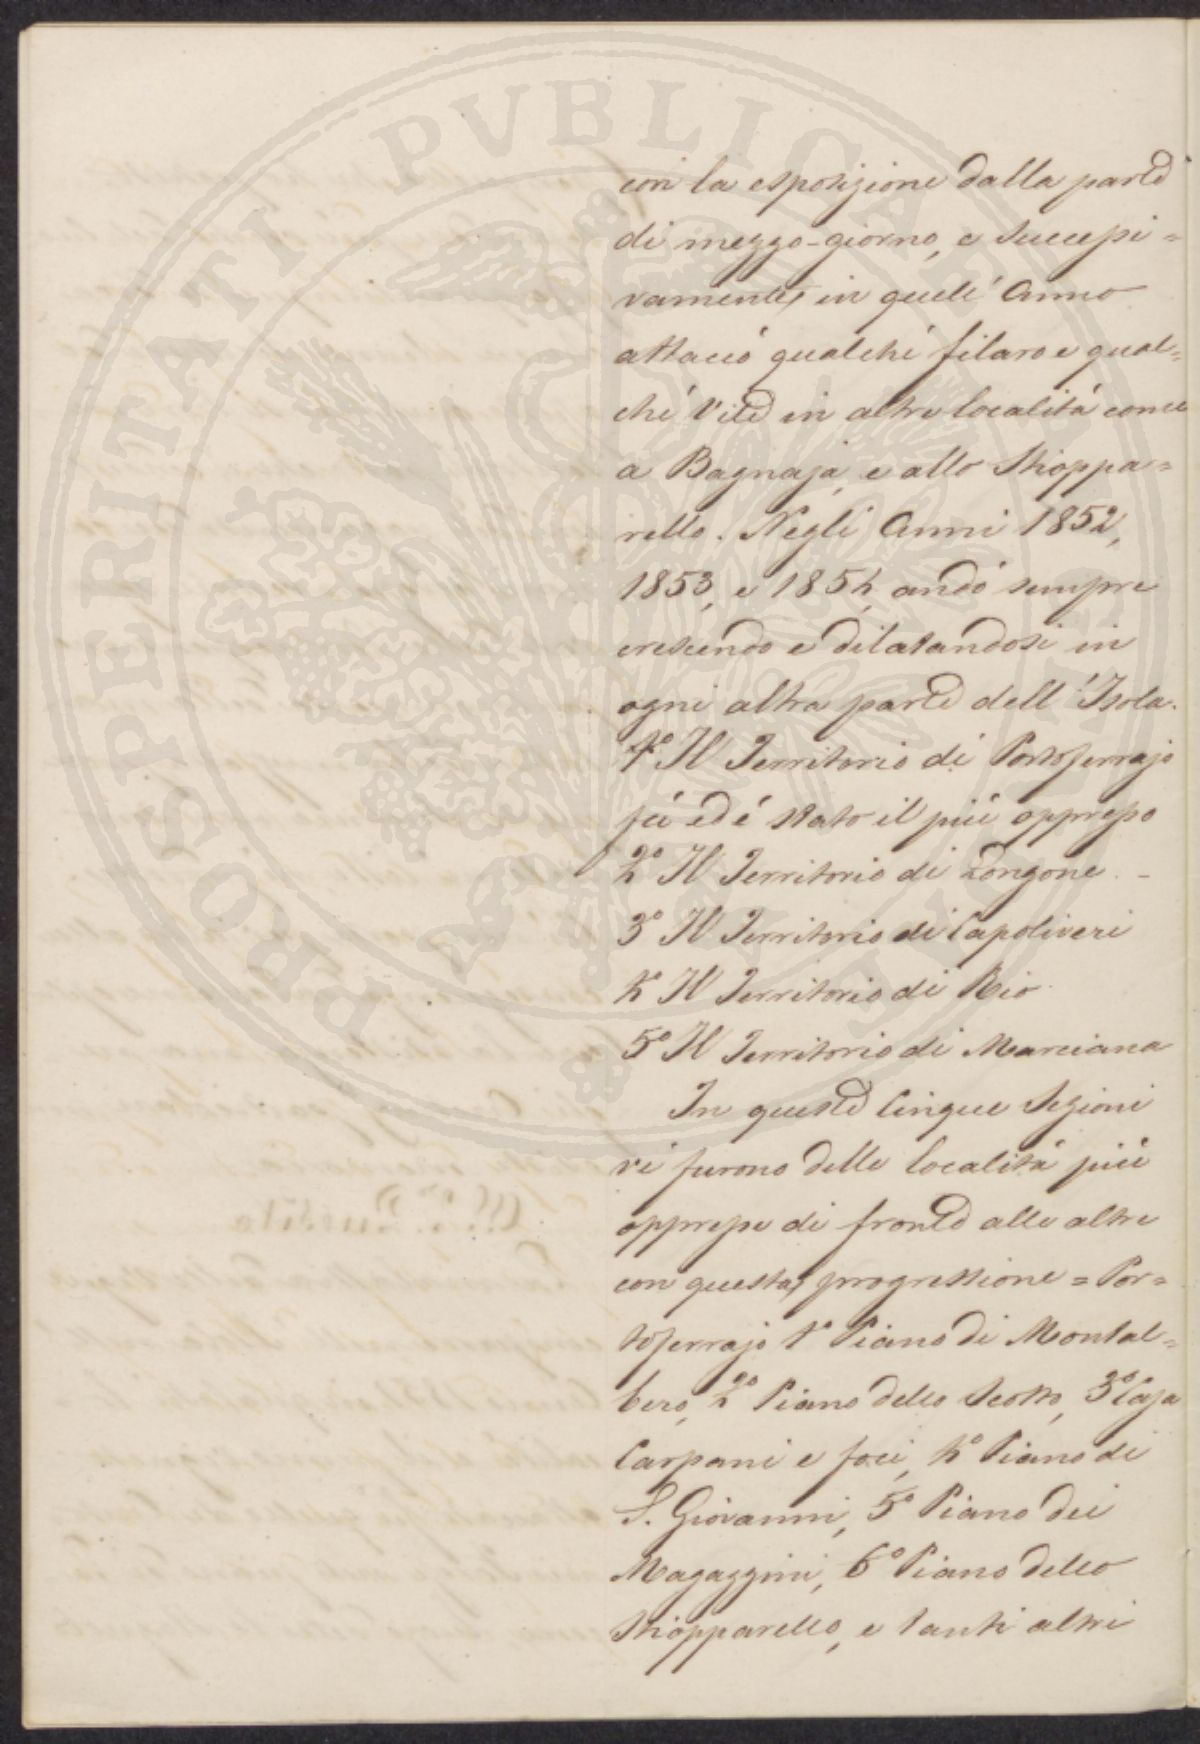 PROSPERITATI PVBLICAE AVGENDAE
con la esposizione dalla parte
di mezzo-giorno, e successi=
vamente, in quell' Anno
attaccò qualchè filaro e qual=
chè Vite in altre località come
a Bagnaja, e allo Schioppa=
rello. Negli Anni 1852,
1853, e 1854, andò sempre
crescendo e dilatandosi in
ogni altra parte dell' Isola.
1.º Il Territorio di Portoferrajo
fù ed é stato il più oppresso
2º Il Territorio di Longone. -
3º Il Territorio di Capoliveri
4º Il Territorio di Rio.
5º Il Territorio di Marciana
In queste Cinque Sezioni
vi furono delle località più
oppresse di fronte alle altre
con questa, progressione = Por=
toferrajo 1º Piano di Montal=
bero, 2º Piano dello Scotto, 3º Casa
Carpani e foci, 4º Piano di
S. Giovanni, 5º Piano dei
Magazzini, 6º Piano dello
Schiopparello, e tanti altri